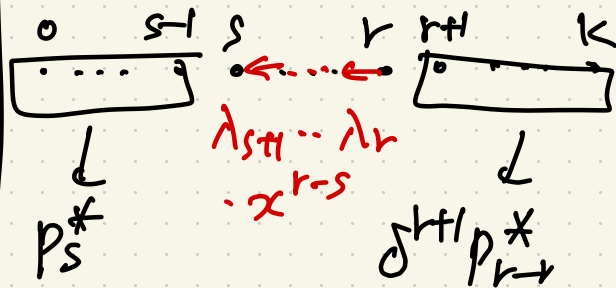 0 s-1 s r r+1 k
λ_{s+1} ⋯ λ_r
· x^{r-s}
p_s^* δ^{r+1} p_{r-r}^*